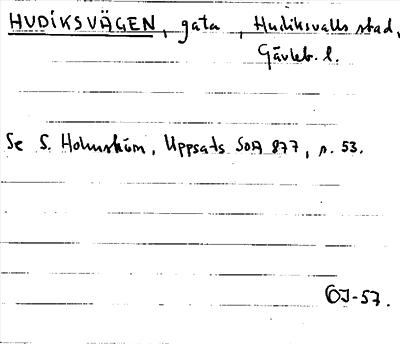 HUDIKSVÄGEN, gata, Hudiksvalls stad,
Gävleb. l.
Se S. Holmström, Uppsats SOA 877, s. 53.
OJ-57.